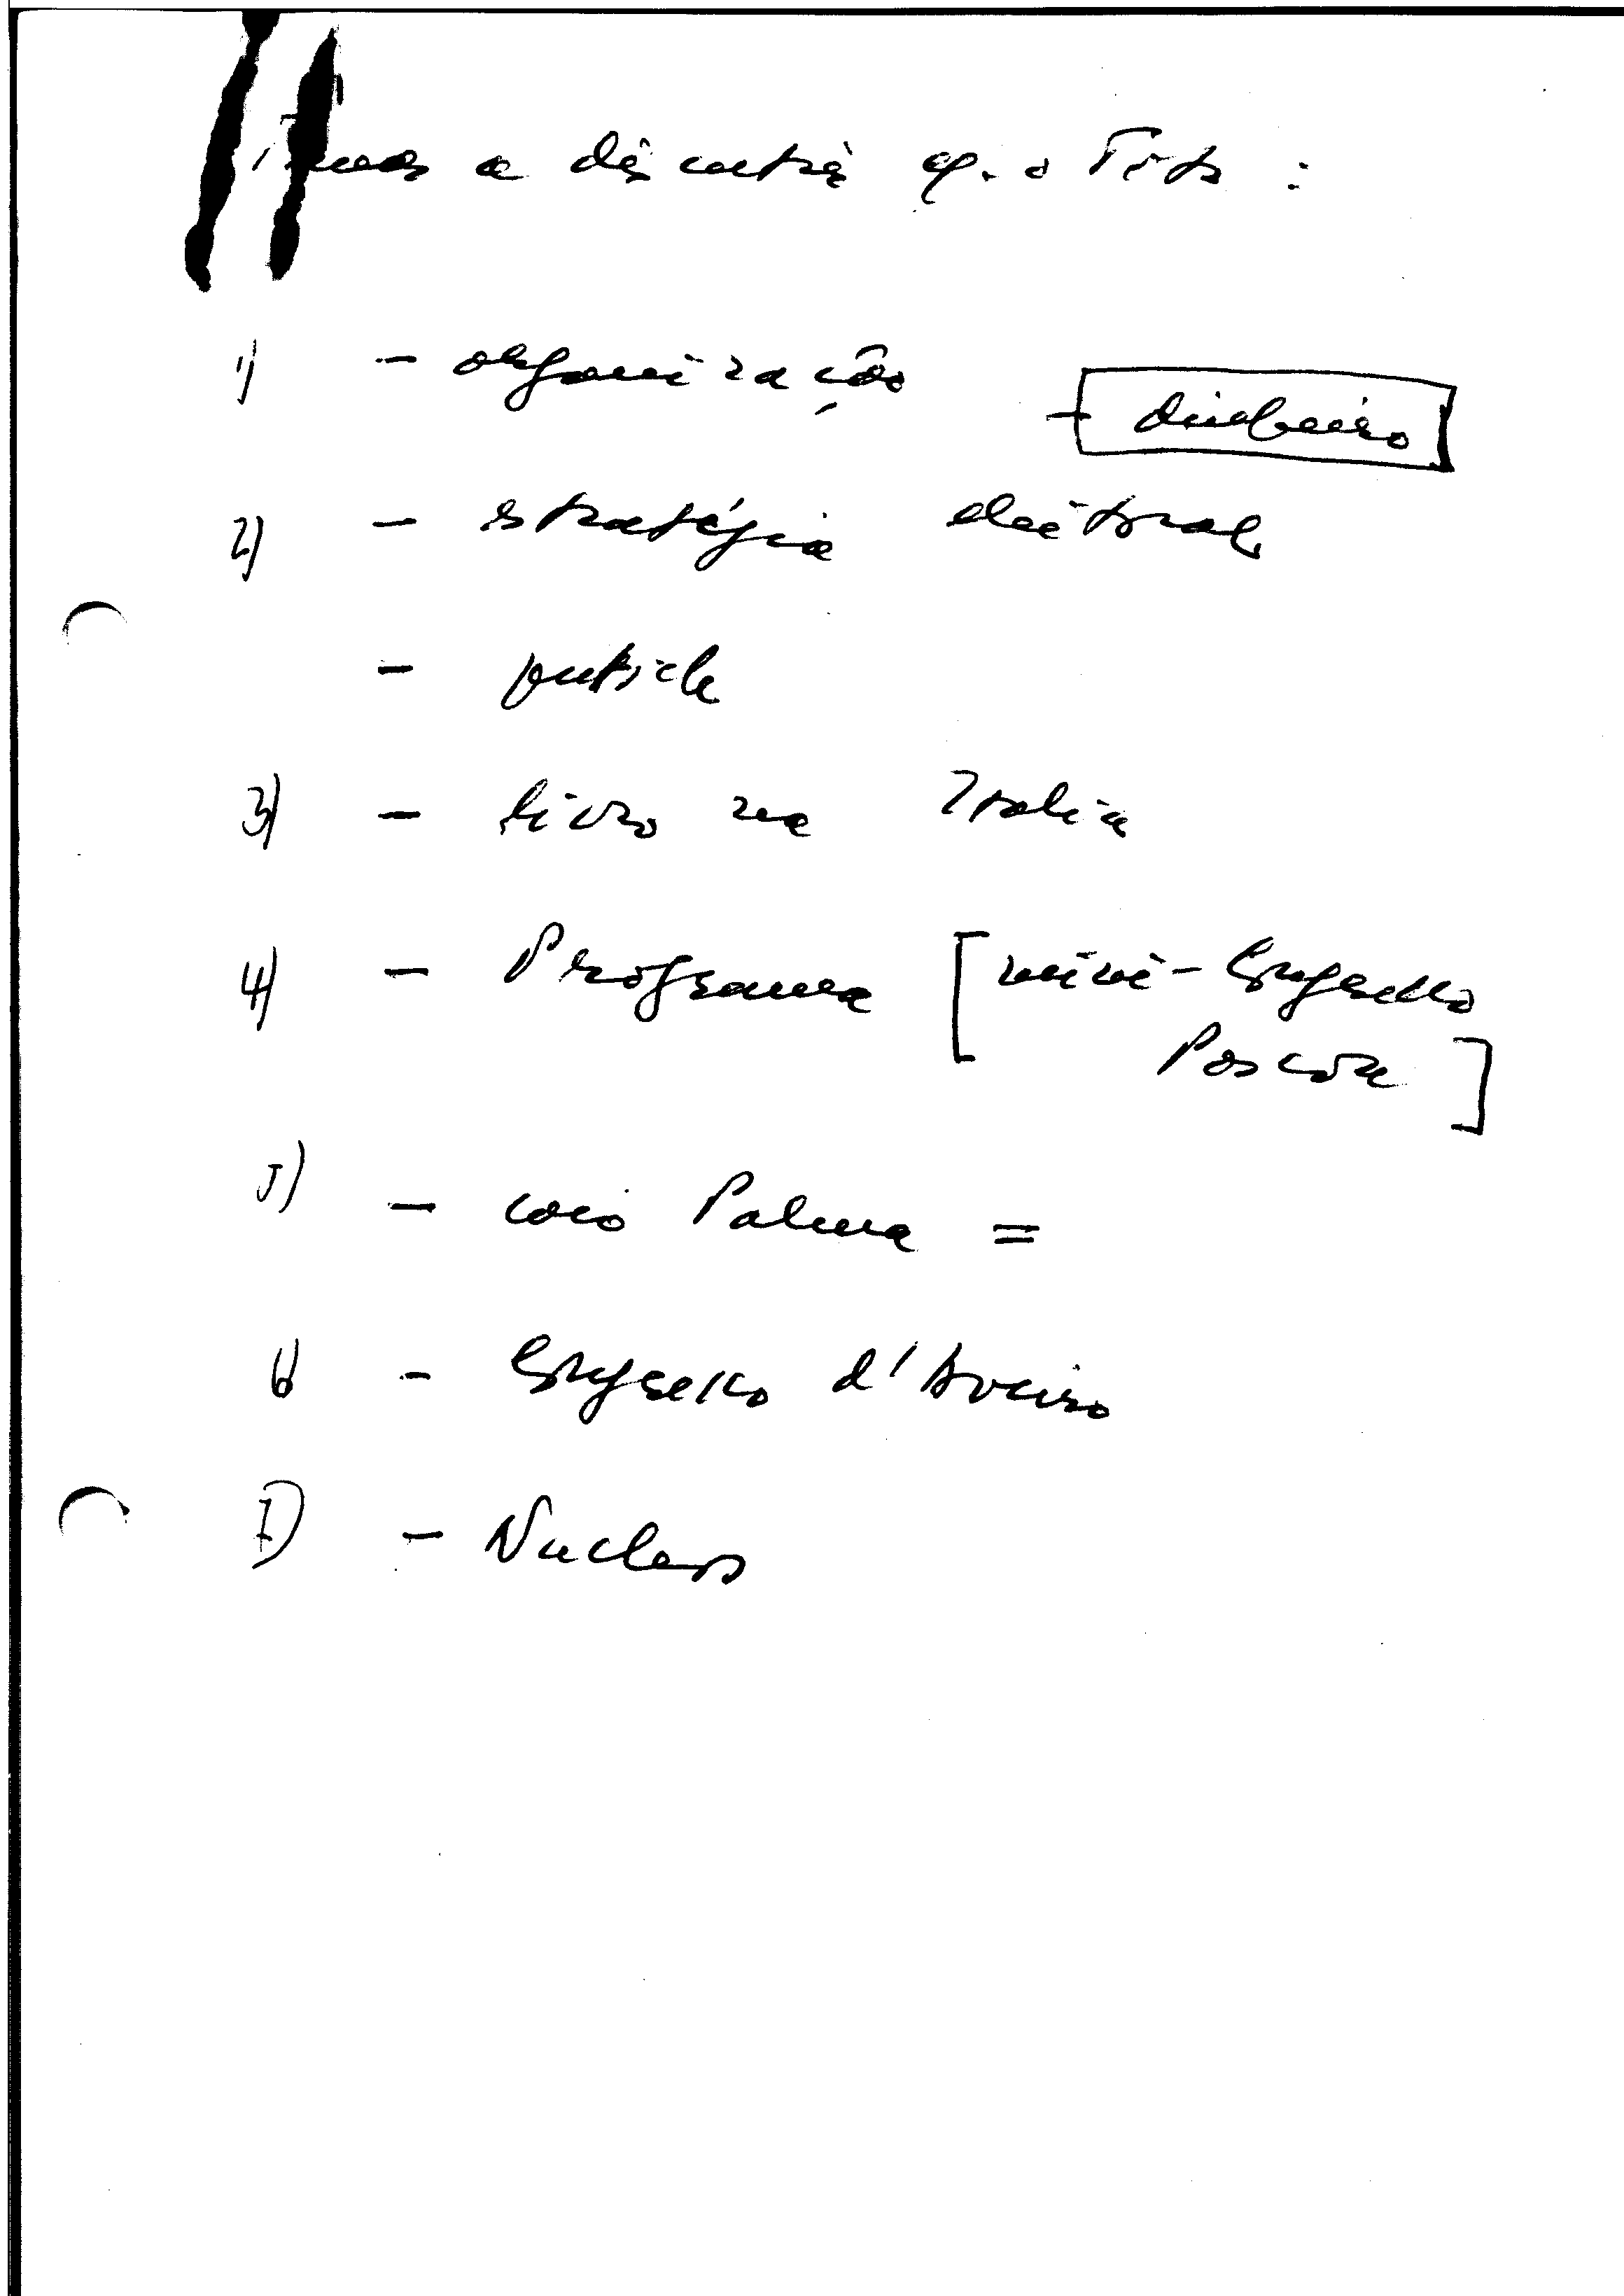 Temas a discutir c/. o Tito :
1) - organização
- dinheiro
2) - estratégia eleitoral
-
3) - livro na Italia
4) - Programa [mini-Congresso
Pascoa]
5) - Palma =
6) - Congresso d'Aveiro
7) - Nucleos